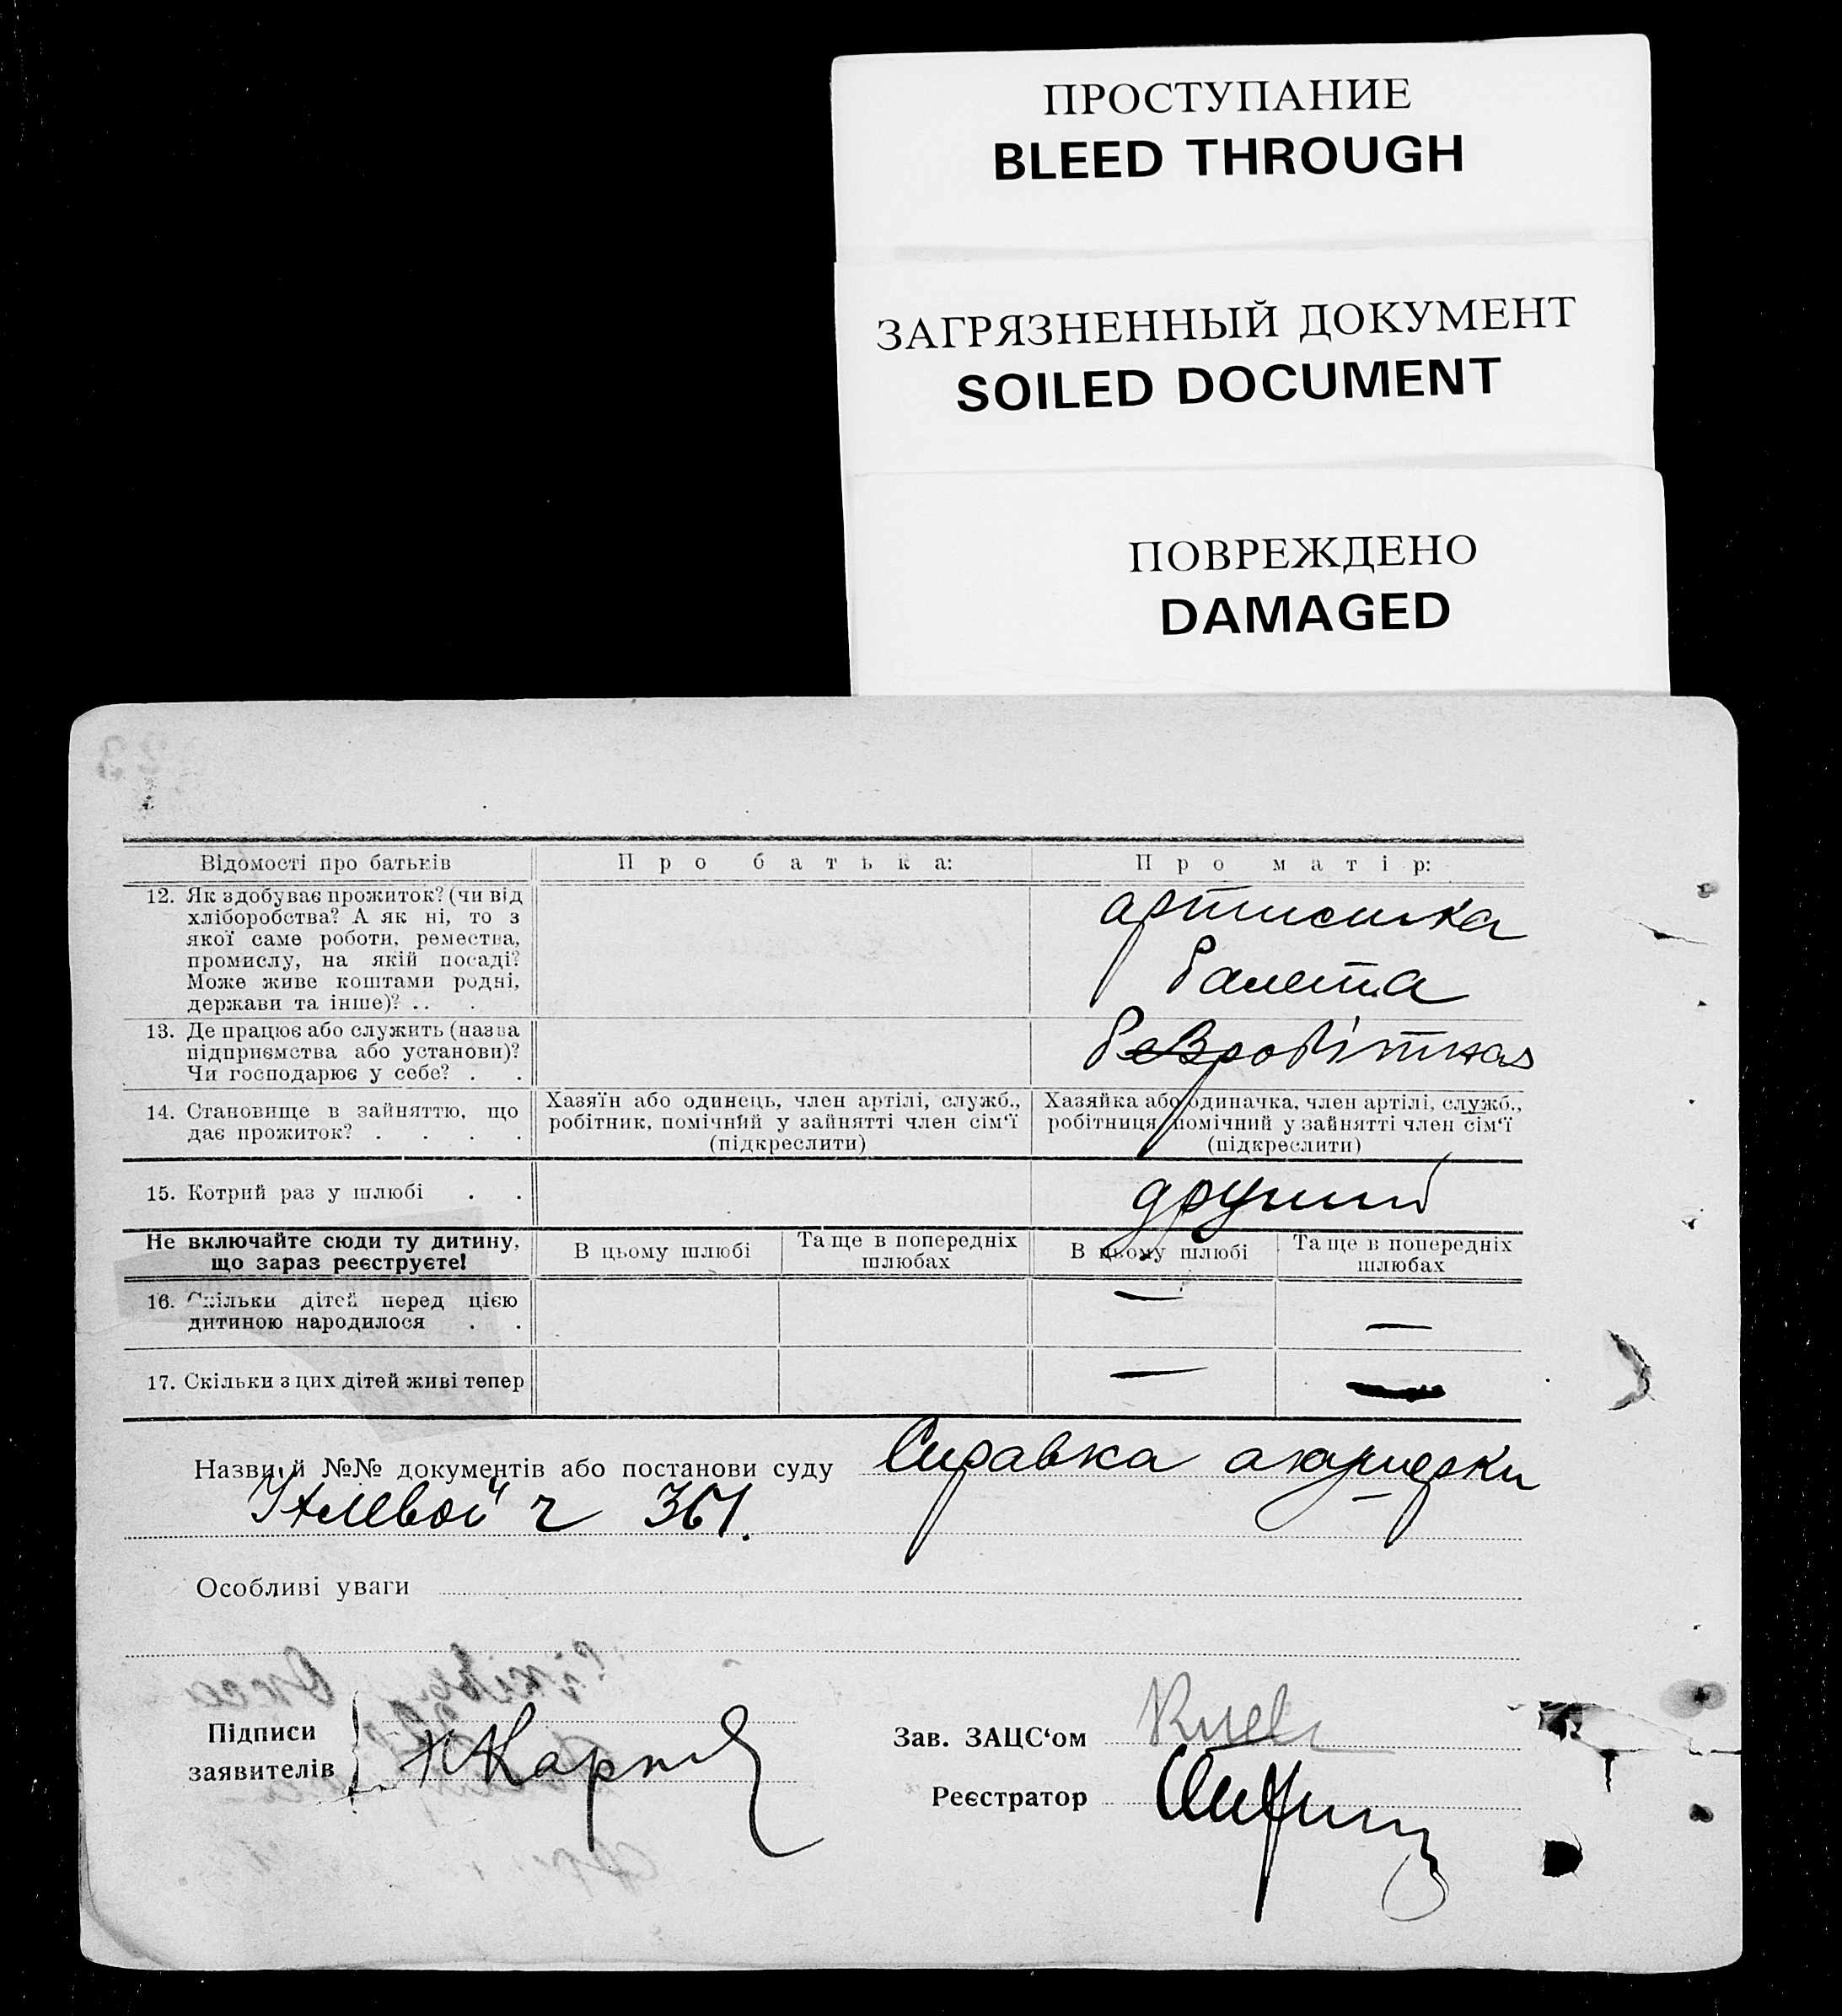 ПРОСТУПАНИЕ
BLEED THROUGH
ЗАГРЯЗНЕННЫЙ ДОКУМЕНТ
SOILED DOCUMENT
ПОВРЕЖДЕНО
DAMAGED
Відомості про батьків
Про батька:
Про матір:
12. Як здобуває прожиток? (чи від
хліборобства? А як ні, то з
якої саме роботи, ремества,
промислу, на якій посаді?
Може живе коштами родні,
держави та інше)? . . .
артистка
балета
13. Де працює або служить (назва
підприємства або установи)?
Чи господарює у себе? . .
безробітная
14. Становище в зайняттю, що
дає прожиток? . . . .
Хазяїн або одинець, член артілі, служб.,
робітник, помічний у зайнятті член сім'ї
(підкреслити)
Хазяйка або одиначка, член артілі, служб.,
робітниця, помічний у зайнятті член сім'ї
(підкреслити)
15. Котрий раз у шлюбі . .
другий
Не включайте сюди ту дитину,
що зараз реєструєте!
В цьому шлюбі
Та ще в попередніх
шлюбах
В цьому шлюбі
Та ще в попередніх
шлюбах
16. Скільки дітей перед цією
дитиною народилося . .
—
—
17. Скільки з цих дітей живі тепер
—
Назви й №№ документів або постанови суду Справка акушерки
ч 361.
Особливі уваги
Підписи
заявителів
Зав. ЗАЦС'ом
Реєстратор